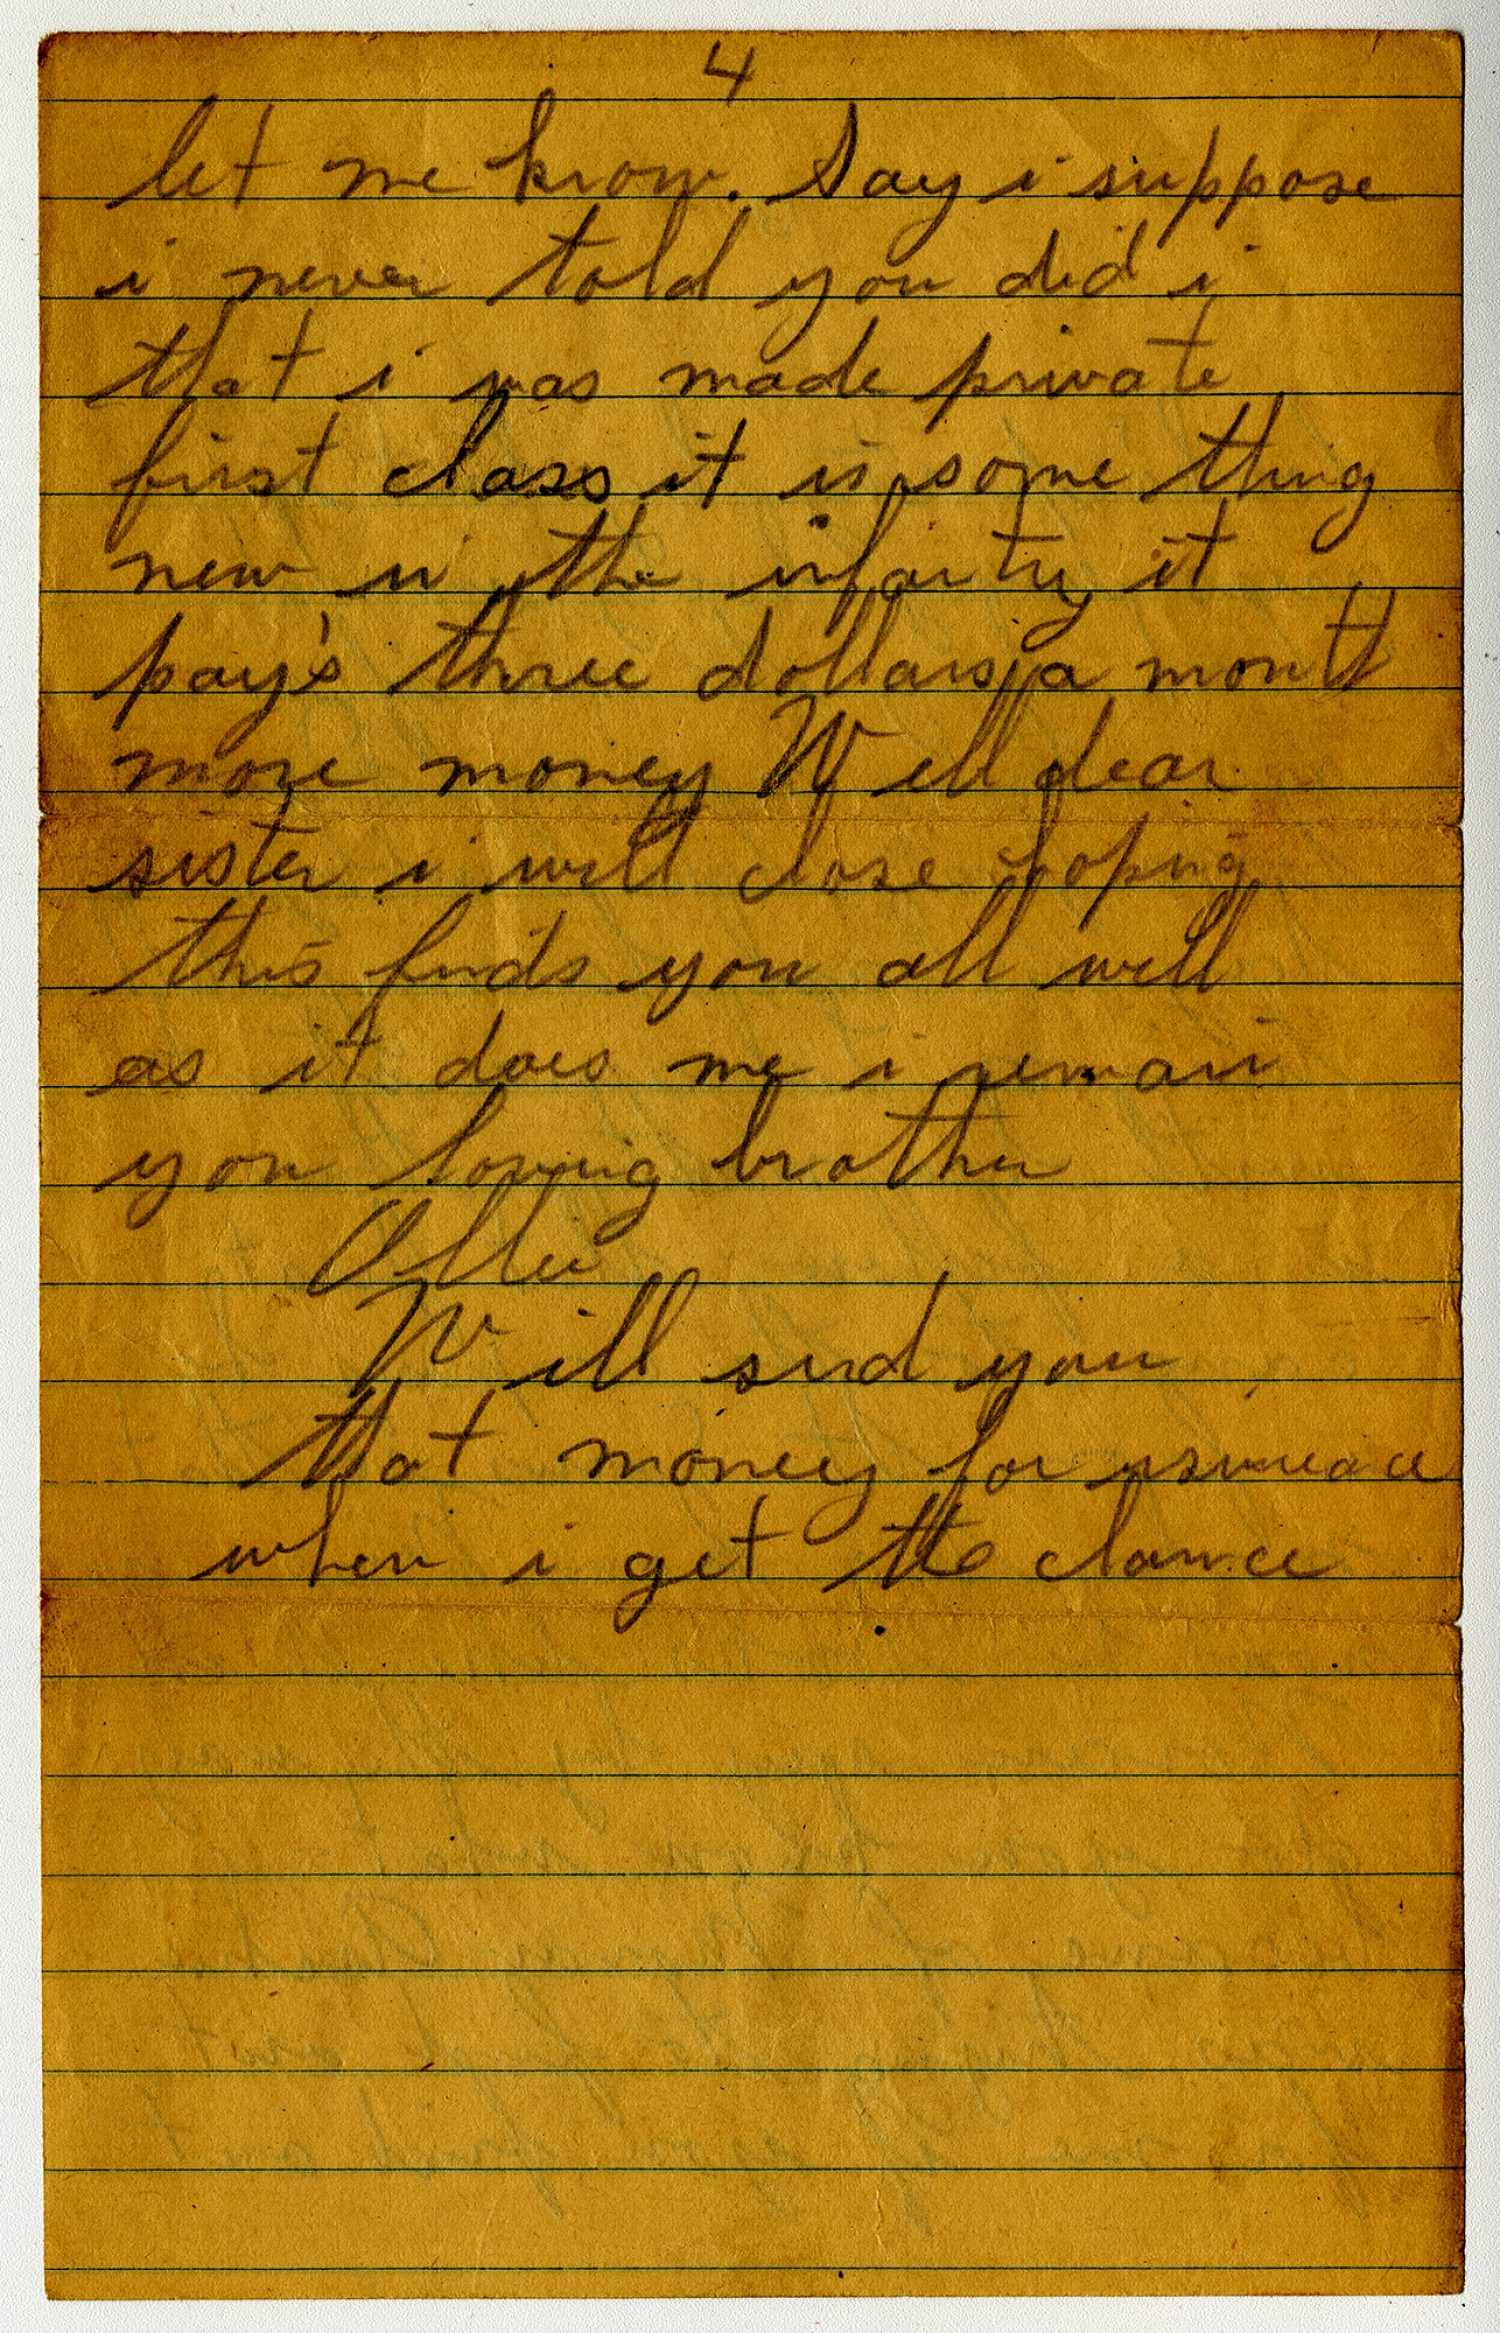 4
let me know. Say i suppose
i never told you did i
that i was made private
first class it is some thing
new in the infantry it
pay's three dollars a month
more money Well dear
sister i will close hoping
this finds you all well
as it does me i remain
your loving brother
Ollie
Will send you
that money for insurance
when i get the chance